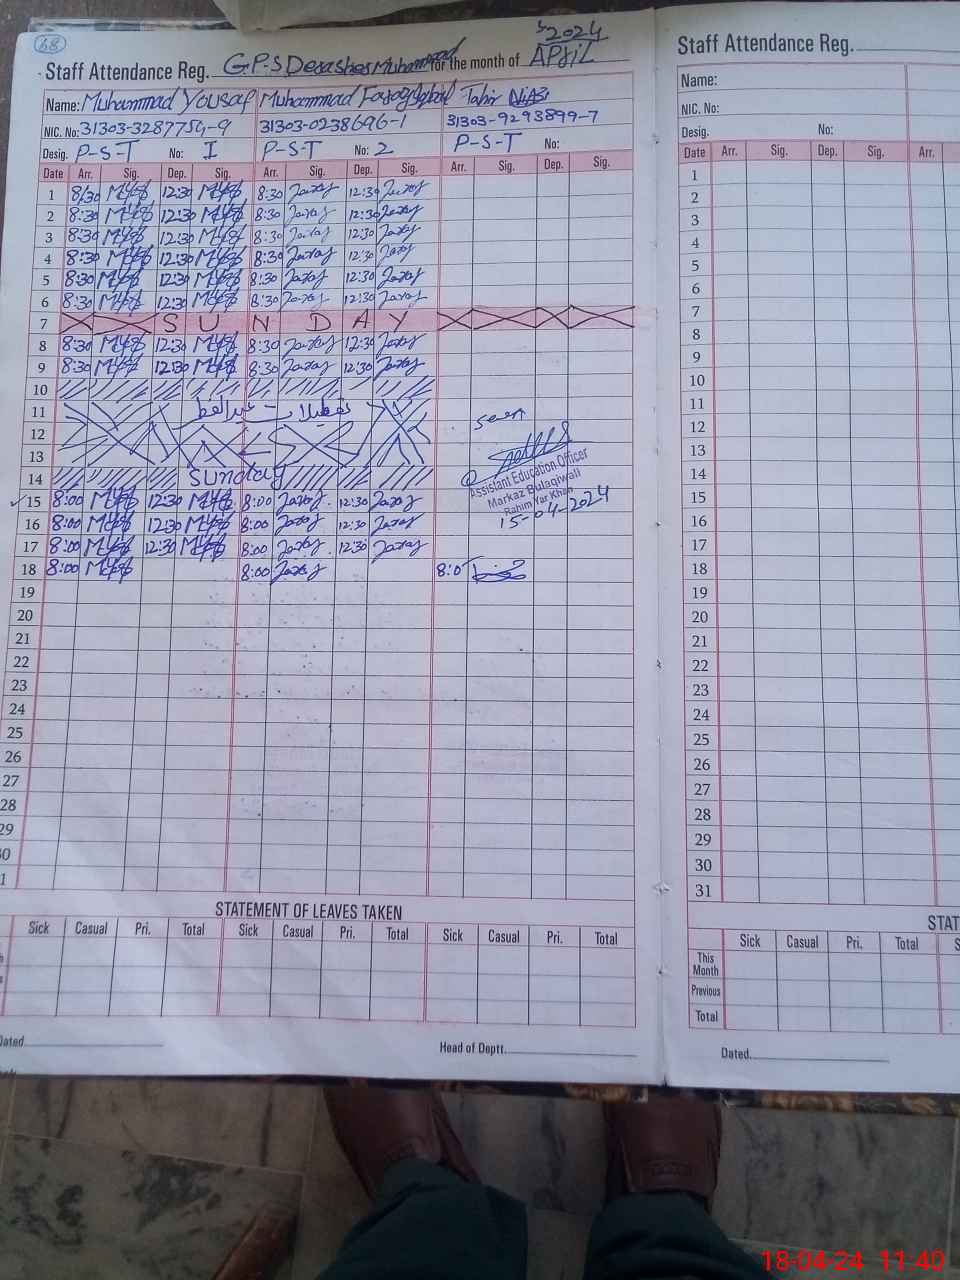 68
2024
Staff Attendance Reg. G.P.S Derashes Muhammad for the month of April
Name: Muhammad Yousaf Muhammad Farooq Iqbal Tahir Niaz
NIC. No: 31303-3287754-9 31303-0238696-1 31303-9293899-7
Desig. P-S-T No: I P-S-T No: 2 P-S-T No:
Date Arr. Sig. Dep. Sig. Arr. Sig. Dep. Sig. Arr. Sig. Dep. Sig.
1 8:30 12:30 8:30 12:30
2 8:30 12:30 8:30 12:30
3 8:30 12:30 8:30 12:30
4 8:30 12:30 8:30 12:30
5 8:30 12:30 8:30 12:30
6 8:30 12:30 8:30 12:30
7 SUNDAY
8 8:30 12:30 8:30 12:30
9 8:30 12:30 8:30 12:30
10
11 تعطیلات عیدالفطر
12
13
14 Sunday
seen
Assistant Education Officer
Markaz Bulaqiwali
Rahim Yar Khan
15-04-2024
15 8:00 12:30 8:00 12:30
16 8:00 12:30 8:00 12:30
17 8:00 12:30 8:00 12:30
18 8:00 8:00 8:0
19
20
21
22
23
24
25
26
27
28
29
30
1
STATEMENT OF LEAVES TAKEN
Sick Casual Pri. Total Sick Casual Pri. Total Sick Casual Pri. Total
Dated
Head of Deptt.
Staff Attendance Reg.
Name:
NIC. No:
Desig. No:
Date Arr. Sig. Dep. Sig. Arr.
1
2
3
4
5
6
7
8
9
10
11
12
13
14
15
16
17
18
19
20
21
22
23
24
25
26
27
28
29
30
31
STAT
Sick Casual Pri. Total S
This Month
Previous
Total
Dated.
18-04-24 11:40